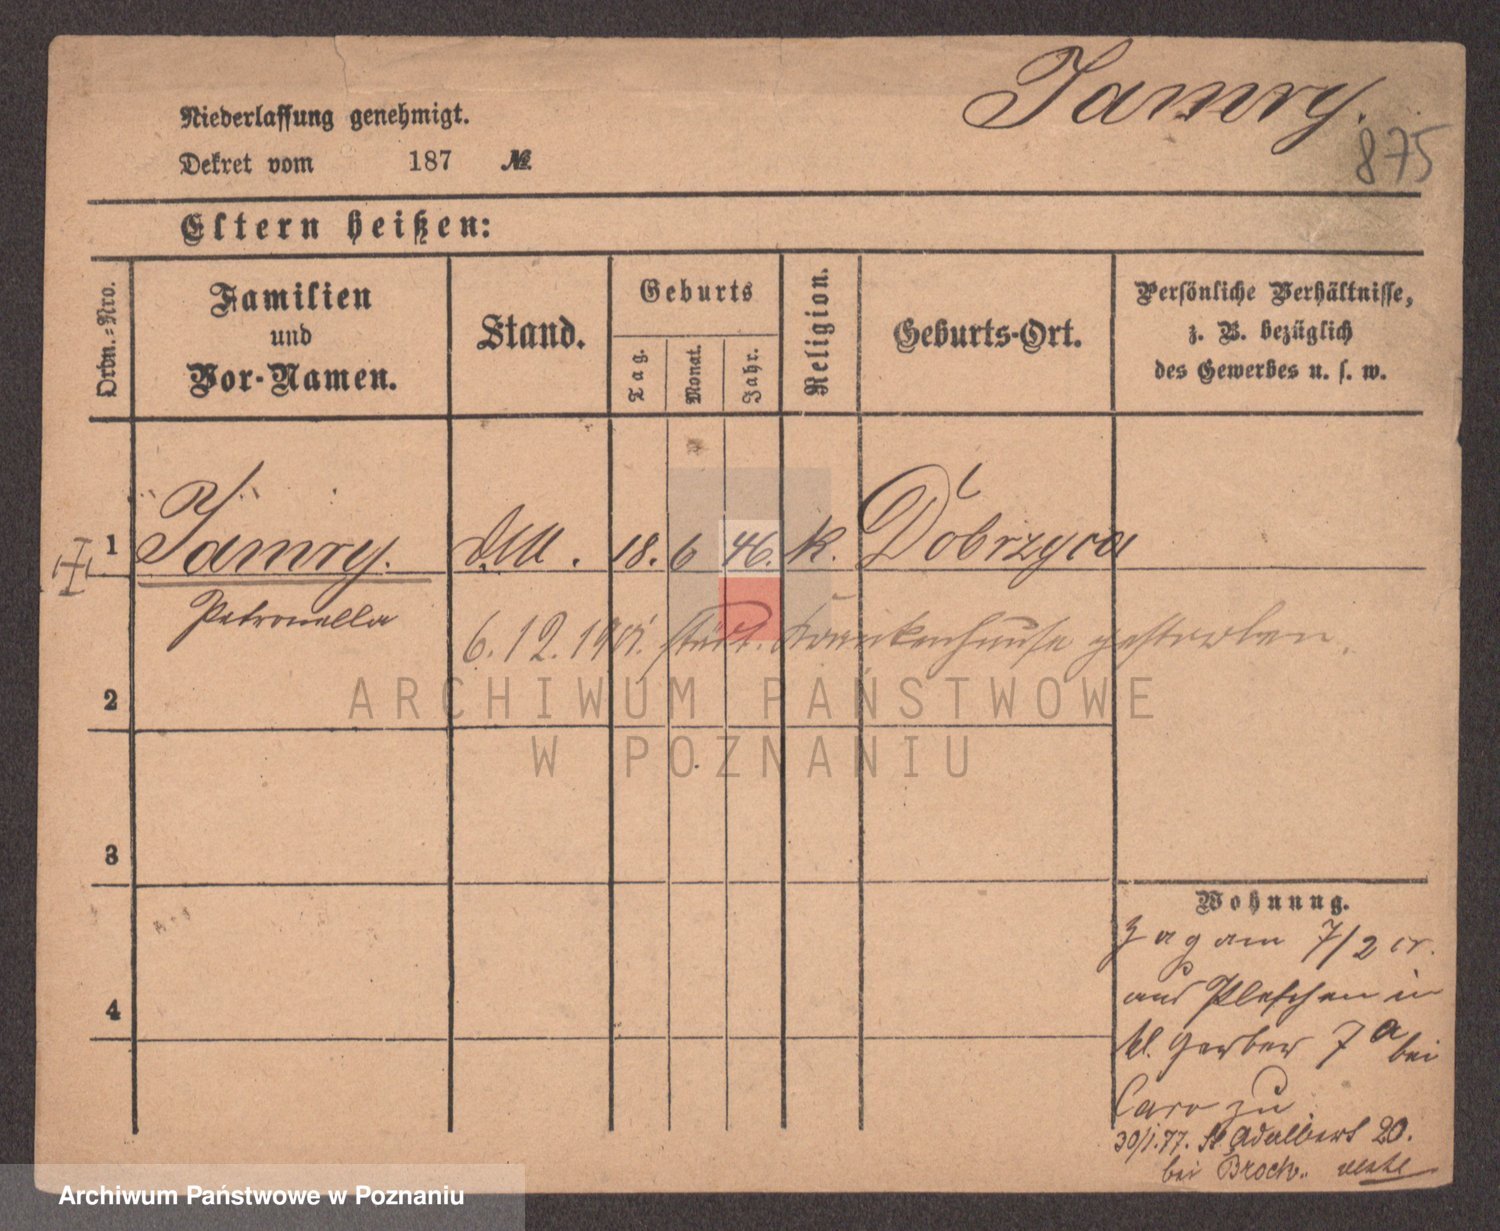 Jamry.
875
Niederlassung genehmigt.
Dekret vom 187 №
Eltern heißen:
Ordn.-Nro.
Familien
und
Vor-Namen.
Stand.
Geburts
Tag.
Monat.
Jahr.
Religion.
Geburts-Ort.
Persönliche Verhältnisse,
z. B. bezüglich
des Gewerbes u. s. w.
1 Jamry. 18. 6 46. k. Dobrzyca
Petronella
6. 12. städt. Krankenhause gestorben.
2
3
4
Wohnung.
Zog am 7/2 cr.
aus Pleschen in
kl. Gerber 7a bei
Caro zu
30/1.77. St. Adalbert 20.
bei Brock.
ARCHIWUM PAŃSTWOWE
W POZNANIU
Archiwum Państwowe w Poznaniu